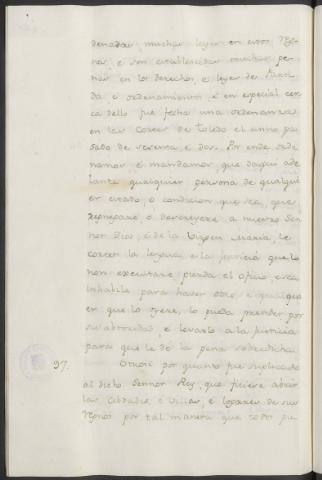 denadas muchas leyes en estos Reg-
nos, e son establecidas muchas pe-
nas en los derechos, e leyes de Parti-
da e ordenamientos, e en especial cer-
ca dello fue fecha una ordenanza
en las Cortes de Toledo el anno pa-
sado de sesenta e dos. Por ende orde-
namos e mandamos, que daqui ade
lante qualquier persona de qualqui
er estado, o condicion que sea, que
renegare o descreyere a nuestro Sen-
nor Dios, e de la Virgen Maria, le
corten la lengua, e la justicia que lo
non executare, pierda el oficio, e sea
inhabile para haver otro, e qualqui
er que lo oyere, lo pueda prender por
su abtoridad, e levarlo a la justicia
para que le dé la pena sobredicha.
97. Otrosi por quanto fue suplicado
al dicho Sennor Rey, que ficiere abrir
las Cibdades, e Villas, e logares de sus
Regnos por tal manera que todos pu